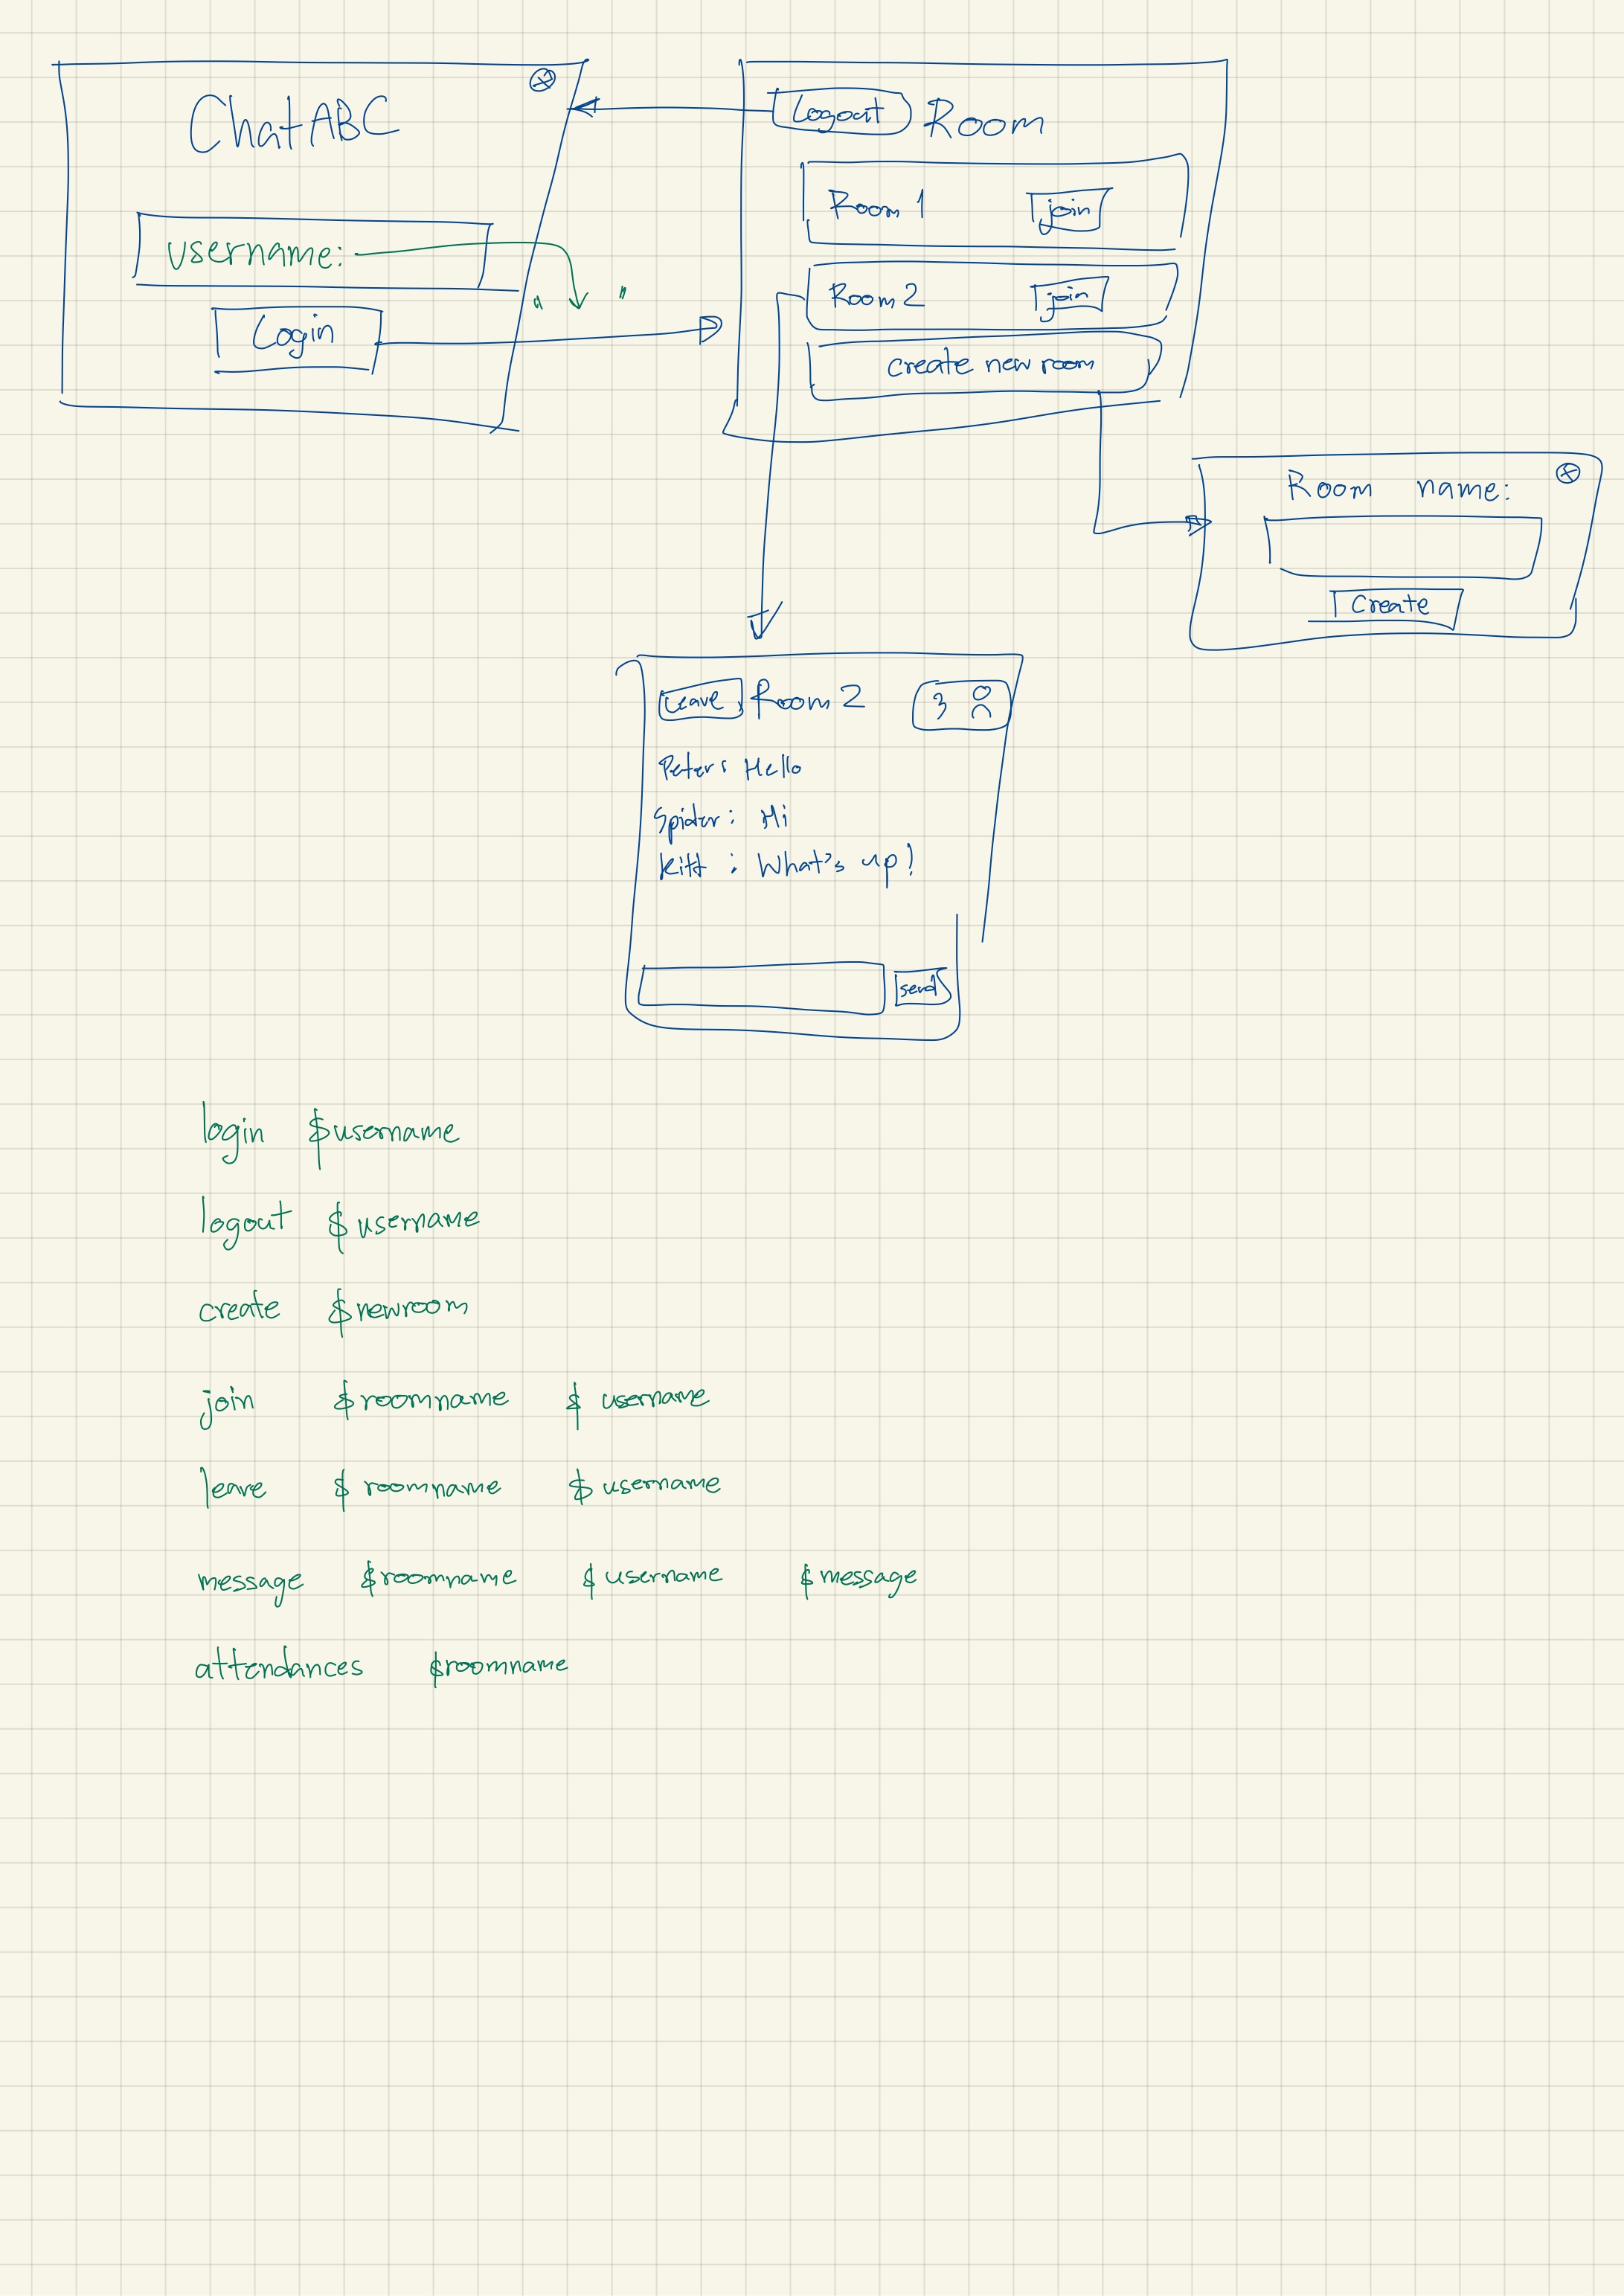 ChatABC
username:
" "
Login
Logout Room
Room 1 join
Room 2 join
create new room
Room name:
Create
Leave Room 2 3
Peter: Hello
Spider: Hi
Kitt : What's up!
send
login $username
logout $username
create $newroom
join $roomname $username
leave $roomname $username
message $roomname $username $message
attendances $roomname